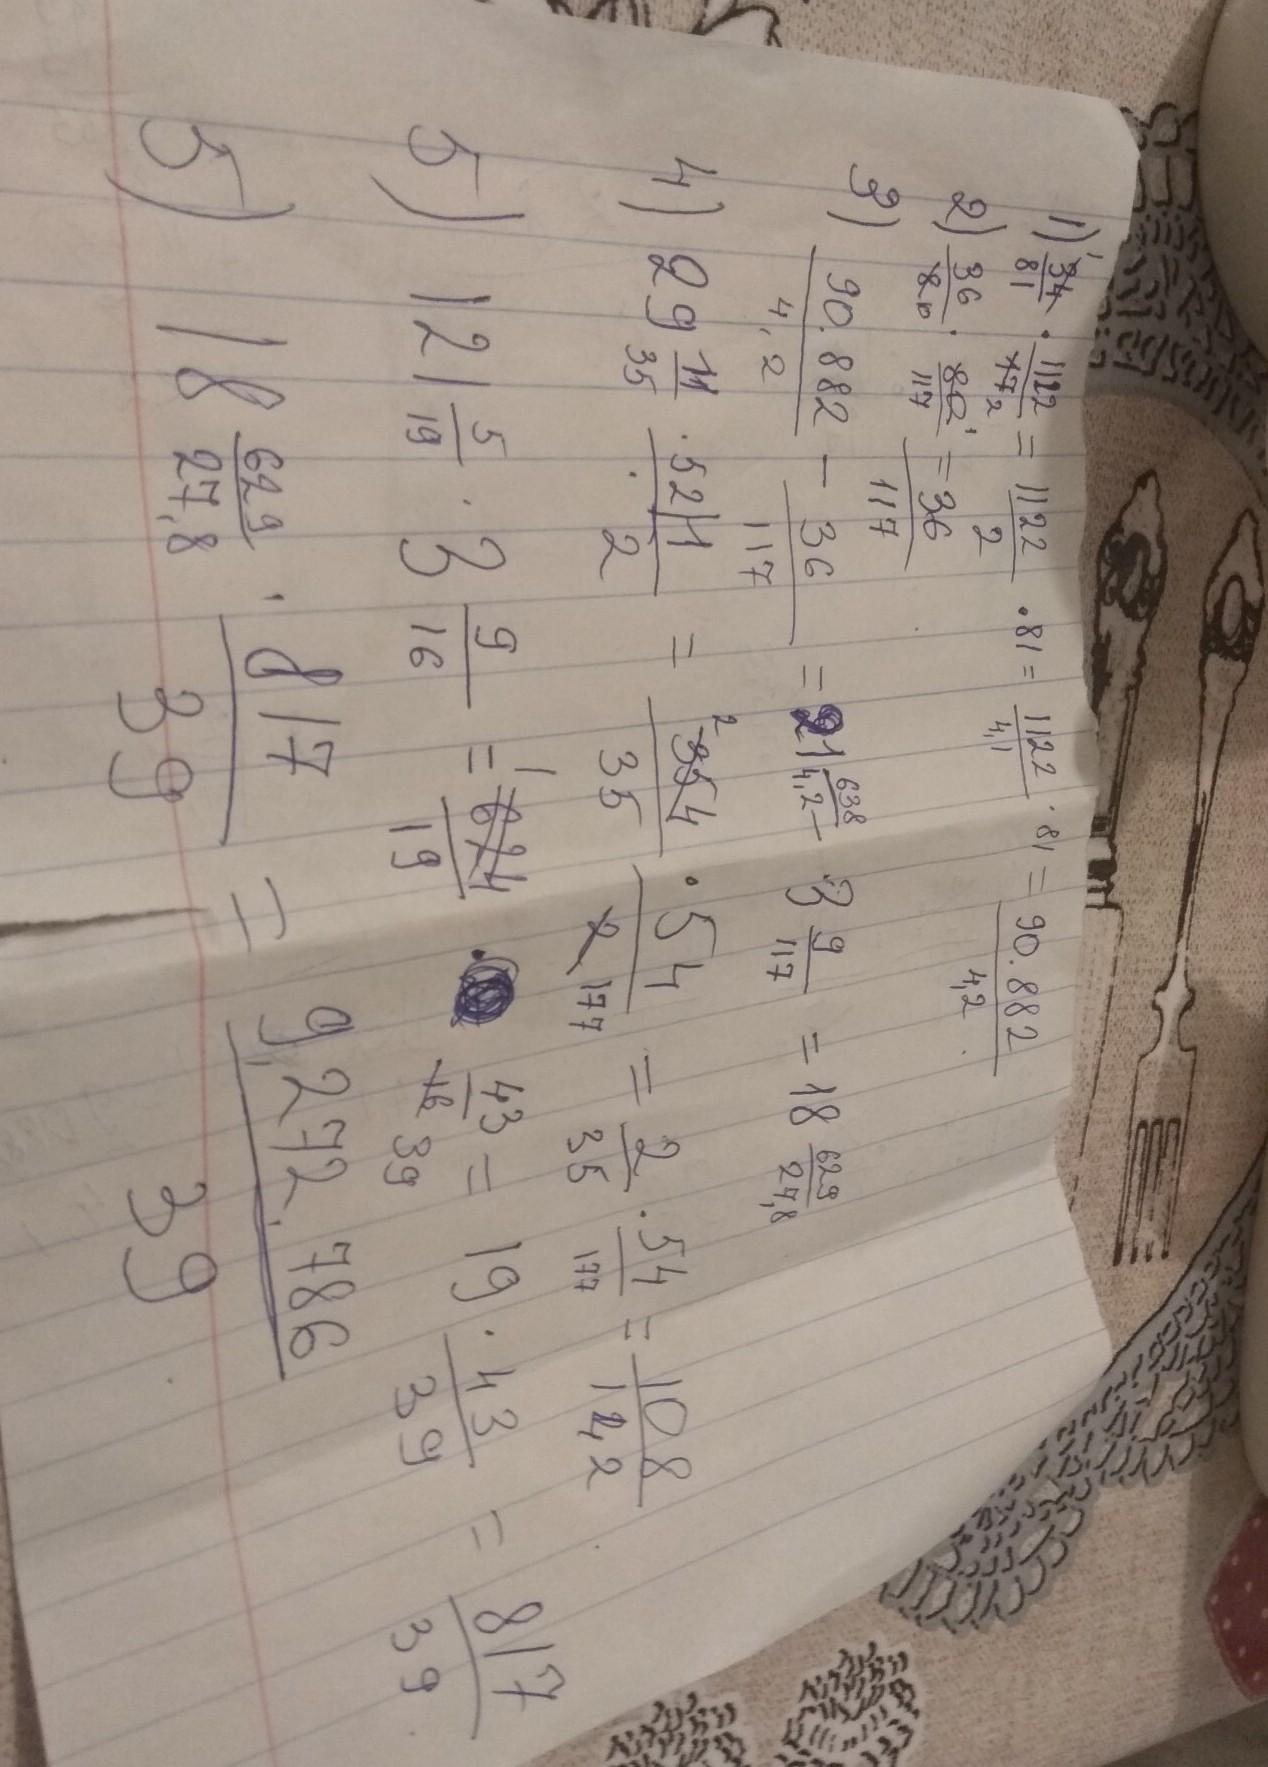 1) 34/81 · 1122/17 2 = 1122/2 · 81 = 1122/4,1 · 81 = 90.882/4,2
2) 36/80 · 80/117 = 36/117
3) 90.882/4,2 - 36/117 = 21 638/4,2 - 3 9/117 = 18 629/27,8
4) 29 11/35 · 521/2 = 354/35 · 54/2 177 = 2/35 · 54/177 = 108/14,2
5) 121 5/19 · 3 9/16 = 624/19 · 43/16 39 = 19 · 43/39 = 817/39
5) 18 629/27,8 · 817/39 = 9,272.786/39